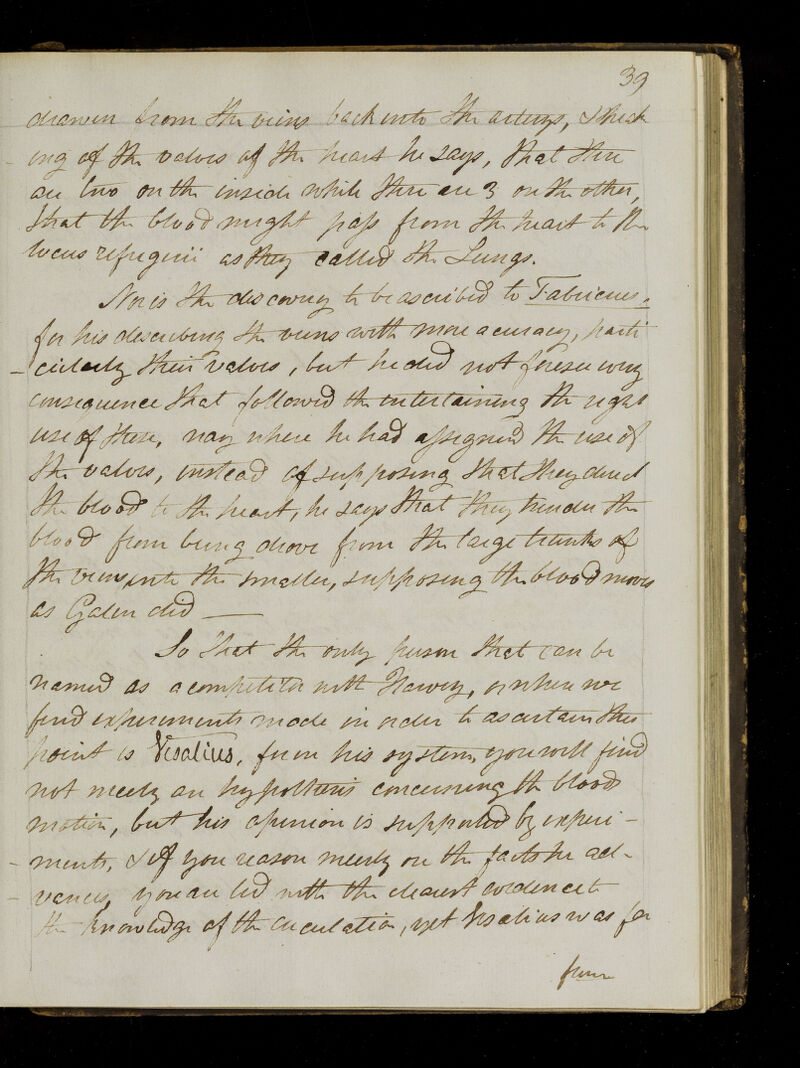 39
drawn from the veins back into the arterys, & speak
ing of the valves of the heart he says, that there
are two on the inside while there are 3 on the other,
that the blood might pass from the heart to the
locus refrigerii as they called the Lungs.
Nor is the discovery to be ascribed to Fabricius,
for his describing the veins with more accuracy, parti
cularly their valves, but he did not foresee every
consequence that followed the entertaining the right
use of these, nay where he had assigned the use of
the valves, instead of supposing that they direct
the blood to the heart, he says that they hinder the
blood from being drove from the large trunks of
the veins into the smaller, supposing the blood moves
as Galen did —
So that the only person that can be
named as a competitor with Harvey, or where we
find experiments made in order to ascertain this
point is Vesalius, for in his system, you will find
not merely an hypothesis concerning the blood
motion, but his opinion is supported by experi-
ments, & if you reason merely on the facts he ad-
vances, you are led with the clearest evidence to
the knowledge of the circulation, yet Vesalius was far
from